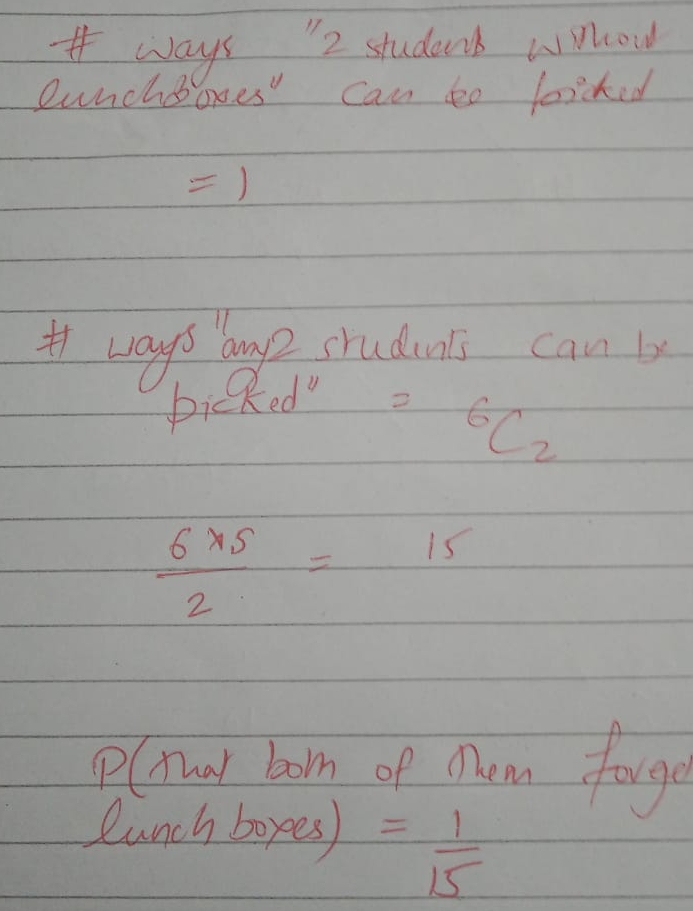 # ways "2 student without
lunchboxes" can be picked
= 1
# ways "any 2 students can be
picked" = ⁶C₂
6 × 5 / 2 = 15
P(that both of them forge
lunch boxes) = 1/15